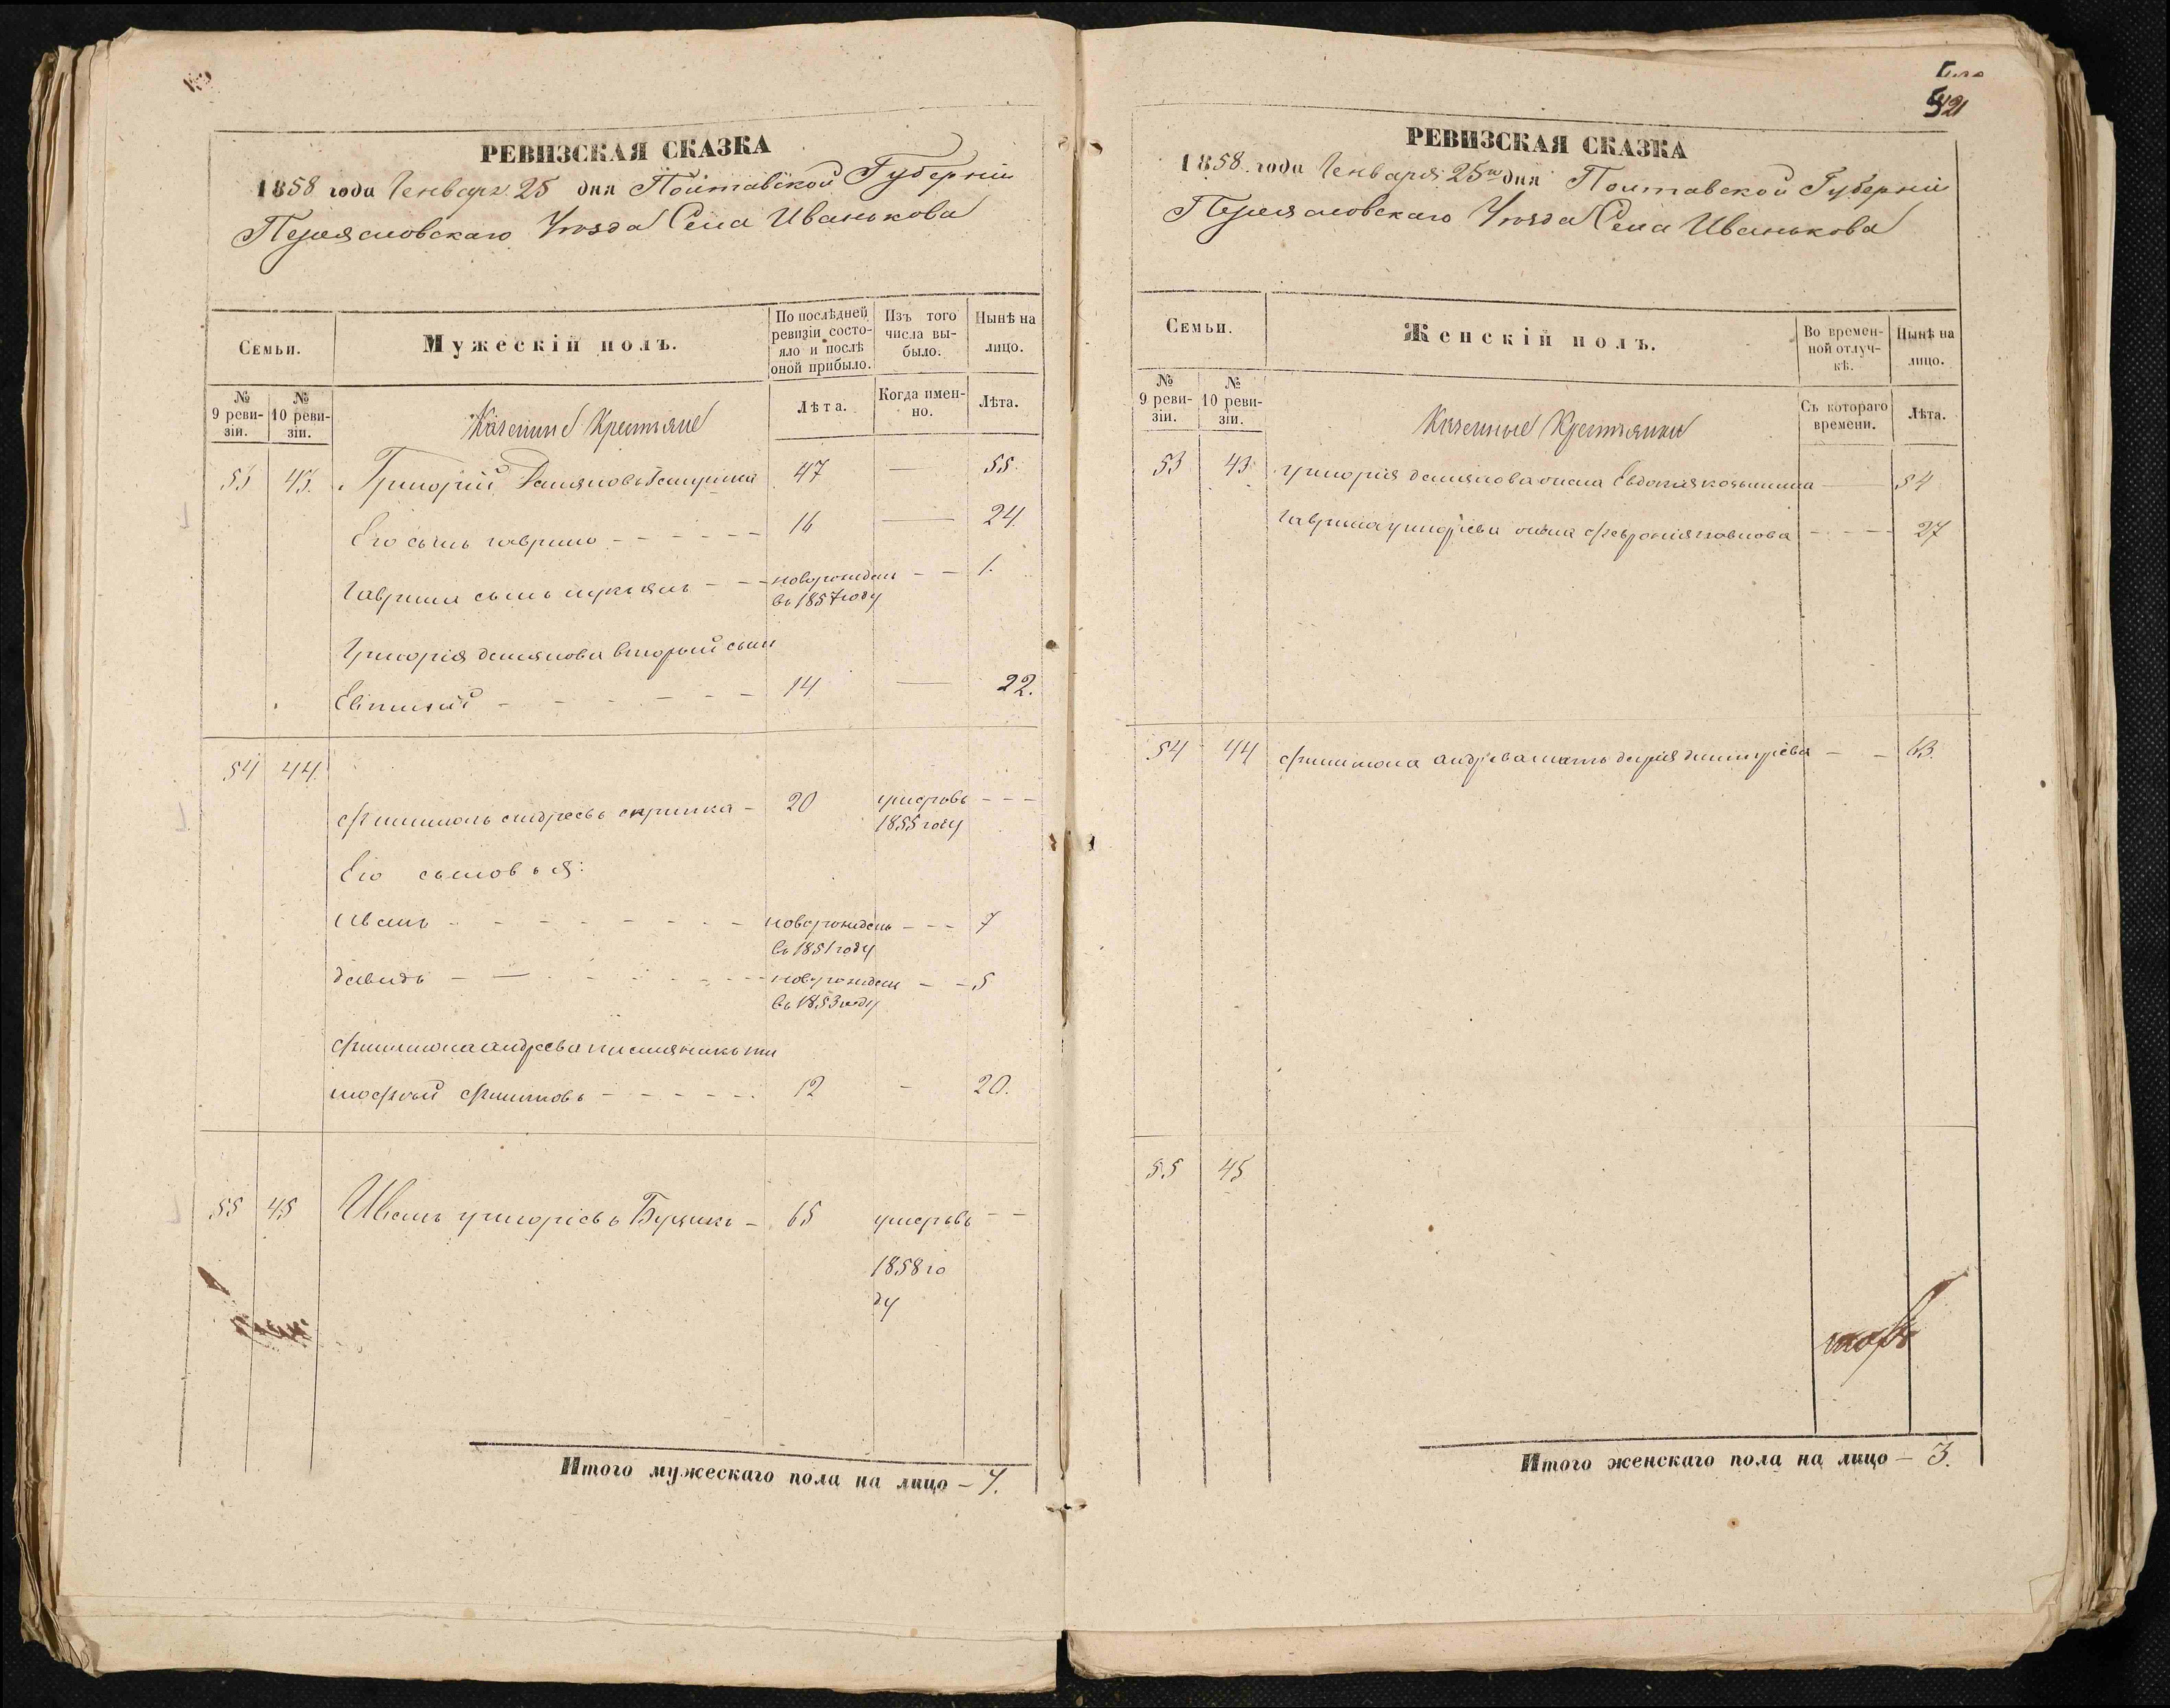 521
РЕВИЗСКАЯ СКАЗКА
1858 года Генваря 25 дня Полтавской Губерніи
Переяславскаго Уѣзда Села Иванькова
Семьи.
Мужескій полъ.
По послѣдней ревизіи состояло и послѣ оной прибыло.
Изъ того числа выбыло.
Нынѣ на лицо.
№ 9 ревизіи.
№ 10 ревизіи.
Казенные Крестьяне
Лѣта.
Когда именно.
Лѣта.
53 43. Григорій Демяновъ 47 — 55.
Его сынъ гаврило - - - - - - 16 — 24.
Гаврила сынъ лукіянъ - - - новорожденъ - - 1.
въ 1857 году
Григорія демянова вторый сынъ
Евтихій - - - - - - 14 — 22.
54 44
филимонъ андреевъ скрипка - 20 умеръвъ - - -
1855 году
Его сыновья:
Иванъ - - - - - - - - новорожденъ - - - 7
въ 1851 году
давидъ - — - - - - - - новорожденъ - - 5
въ 1853 году
филимона андреева племянникъ ти
мофей - - - - - - 12 - 20.
55 45 Иванъ григоріевъ - 65 умеръвъ - -
1858 го
ду
Итого мужескаго пола на лицо - 7.
РЕВИЗСКАЯ СКАЗКА
1858 года Генваря 25го дня Полтавской Губерніи
Переяславскаго Уѣзда Села Иванькова
Семьи.
Женскій полъ.
Во временной отлучкѣ.
Нынѣ на лицо.
№ 9 ревизіи.
№ 10 ревизіи.
Казенные Крестьянки
Съ котораго времени.
Лѣта.
53 43 григорія демянова жена Евдокія козьмина — 54
гаврила григорьева жена феврония павлова - - - 27
54 44 филимона андрева мать дарія дмитріева - - 63.
55 45
Итого женскаго пола на лицо - 3.